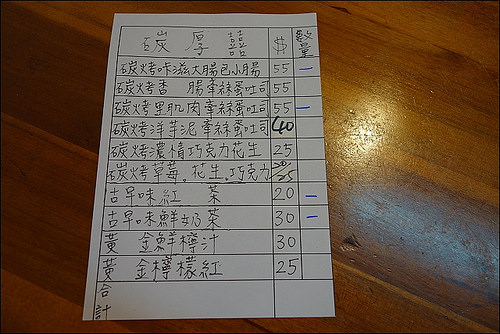 碳 厚 囍 $ 數量
碳烤咔滋大腸包小腸 55 一
碳烤香 腸牽絲蛋吐司 55
碳烤里肌肉牽絲蛋吐司 55 一
碳烤洋芋泥牽絲蛋吐司 40
碳烤濃情巧克力花生 25
碳烤草莓。花生。巧克力
古早味紅 茶 20 一
古早味鮮奶茶 30 一
黃 金鮮檸汁 30
黃 金檸檬紅 25
合計